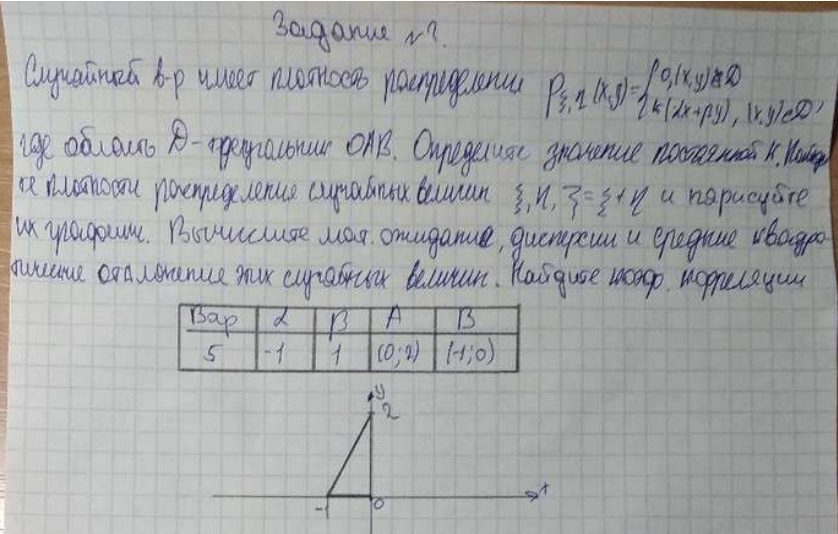 Задание №2.
Случайный в-р имеет плотность распределения p ξ,η (x,y) = { 0, (x,y) ∉ D
k(αx+βy), (x,y) ∈ D,
где область D - треугольник OAB. Определите значение постоянной k. Найди
те плотности распределение случайных величин ξ, η, ζ = ξ + η и нарисуйте
их графики. Вычислите мат. ожидание, дисперсии и средние квадра
тические отклонение этих случайных величин. Найдите коэф. корреляции
Вар α β A B
5 -1 1 (0;2) (-1;0)
y
2
-1 0 x